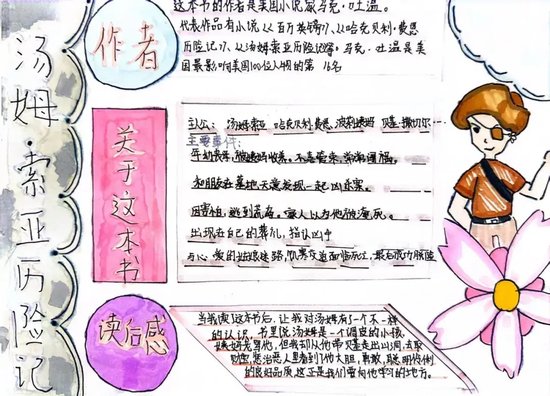 汤姆·索亚历险记
作者
这本书的作者是美国小说家马克·吐温。
代表作品有小说《百万英镑》《哈克贝利·费恩
历险记》《汤姆索亚历险记》等。马克·吐温是美
国最影响美国100位人物的第16名
关于这本书
主人公：汤姆索亚 哈克贝利费恩 波利姨妈 贝蒂·撒切尔…
主要事件：
年幼丧母，被姨妈收养。不喜管束，常常闯祸。
和朋友在墓地无意发现一起凶杀案。
因害怕，逃到荒岛。家人以为他们被淹死。
出现在自己的葬礼，指认凶手
与心爱的 迷路，饥寒交迫面临死亡，最后成功脱险
读后感
当我读了这本书后，让我对汤姆有了一个不一样
的认识。书里说汤姆是一个调皮的小孩，
姨妈 骂他，但我却从他带贝蒂走出山洞，去取
财宝，惩治恶人里看到了他大胆，勇敢，聪明伶俐
的良好品质，这正是我们要向他学习的地方。